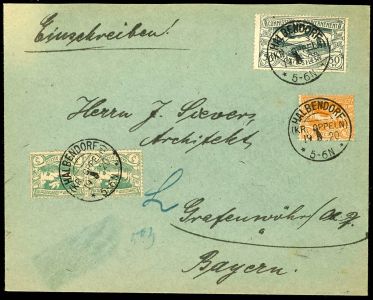 Einschreiben!
50
HALBENDORF
(KR. OPPELN)
5-6N
HALBENDORF
(KR. OPPELN)
5-6N
Herrn J. Sievers
Architekt
HALBENDORF
5-6N
Grafenwöhr
Bayern.